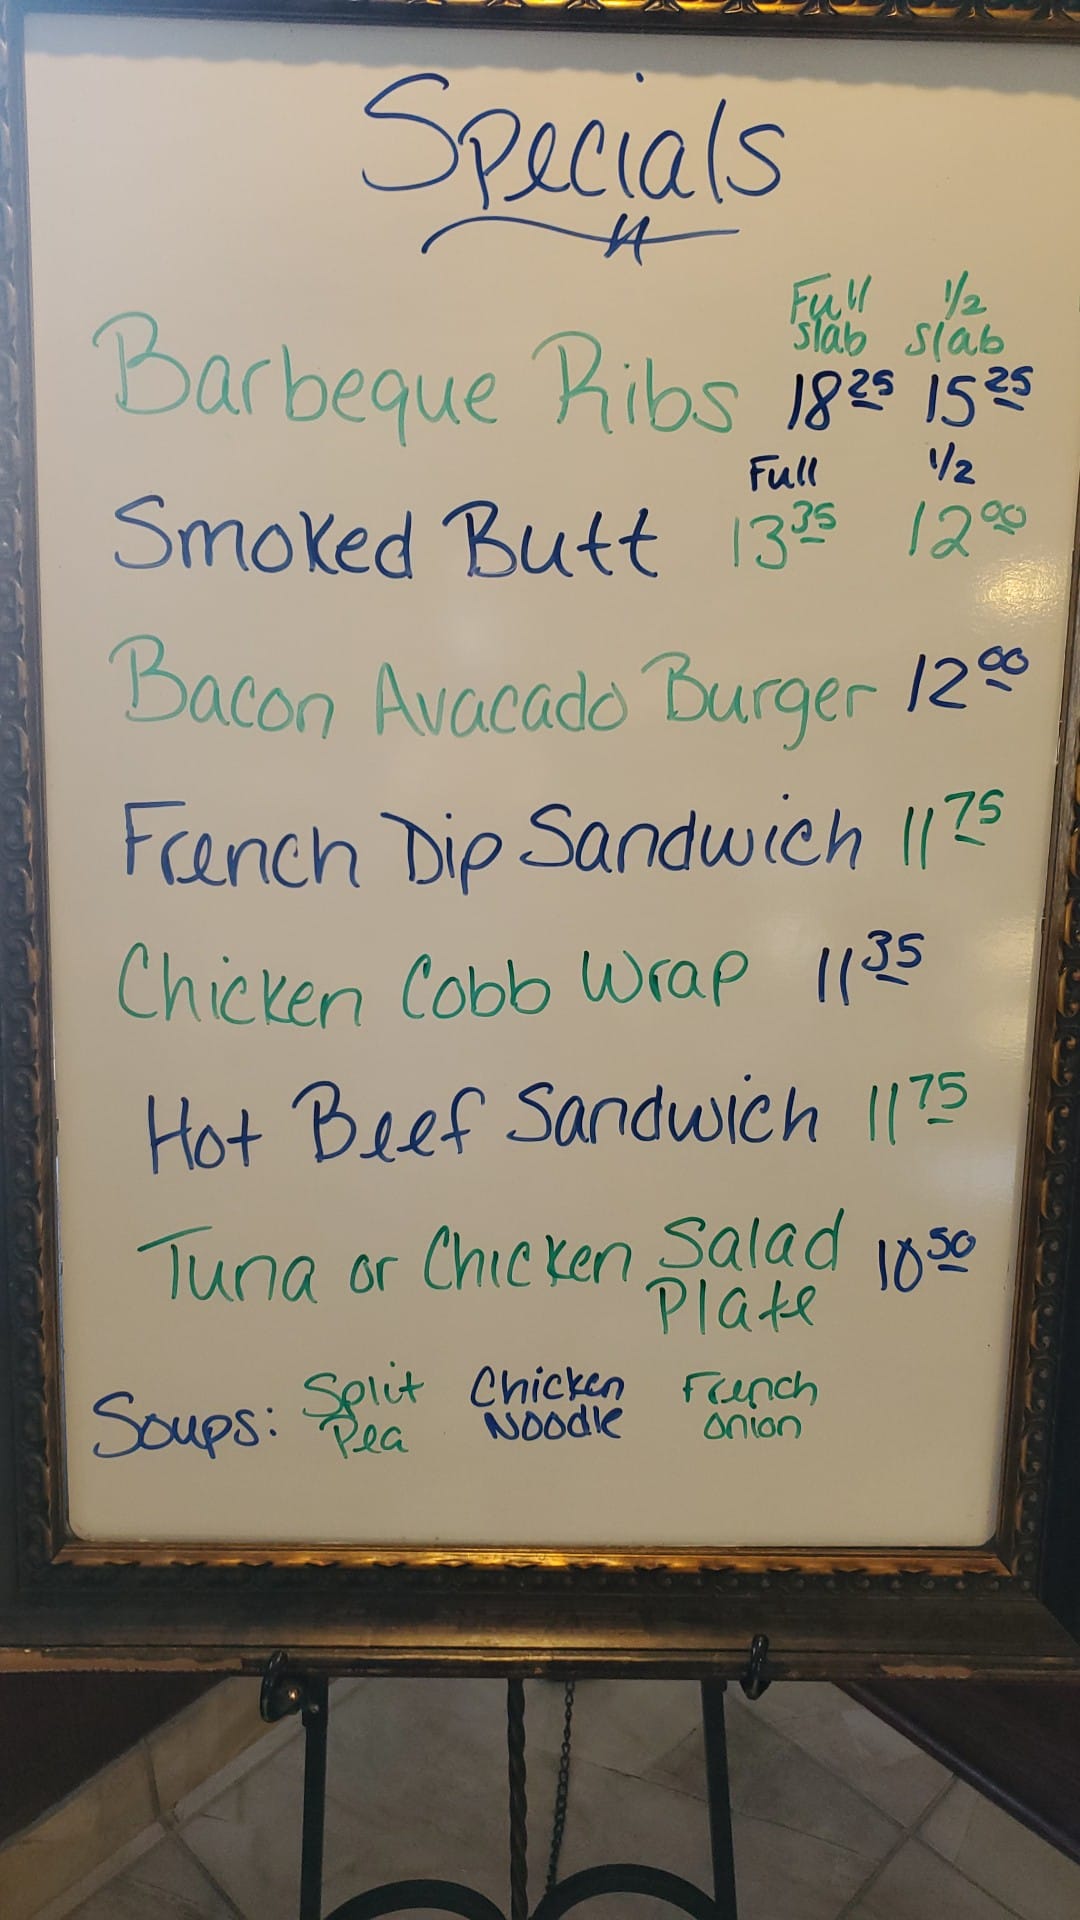 Specials
Full 1/2
slab slab
Barbeque Ribs 18 25 15 25
Full 1/2
Smoked Butt 13 35 12 00
Bacon Avacado Burger 12 00
French Dip Sandwich 11 75
Chicken Cobb Wrap 11 35
Hot Beef Sandwich 11 75
Tuna or Chicken Salad 10 50
Plate
Soups: Split Chicken French
Pea Noodle Onion